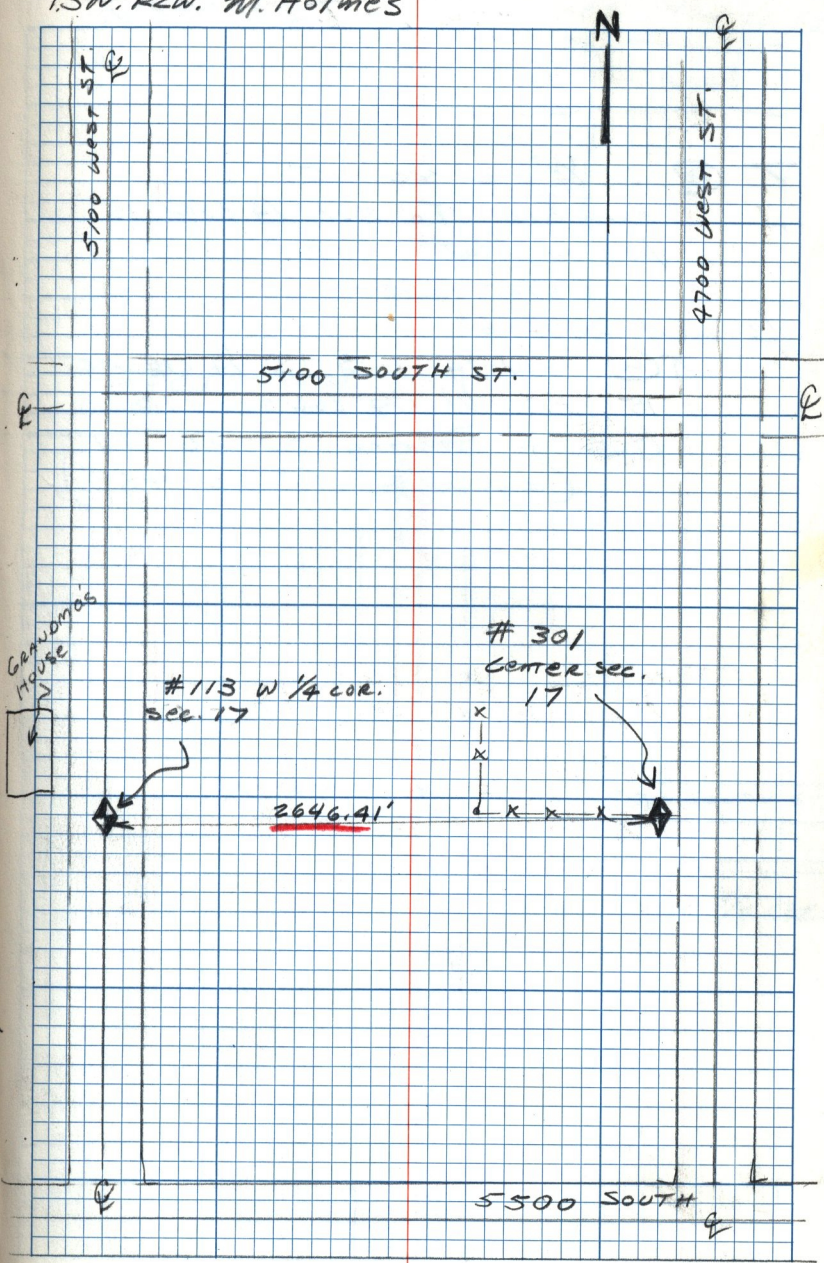 T.5N. R2W. M. Holmes
N
5100 West ST.
4700 West ST.
5100 SOUTH ST.
GRANDMA'S
HOUSE
# 301
Center sec.
17
#113 W 1/4 cor.
sec. 17
2646.41'
5500 SOUTH